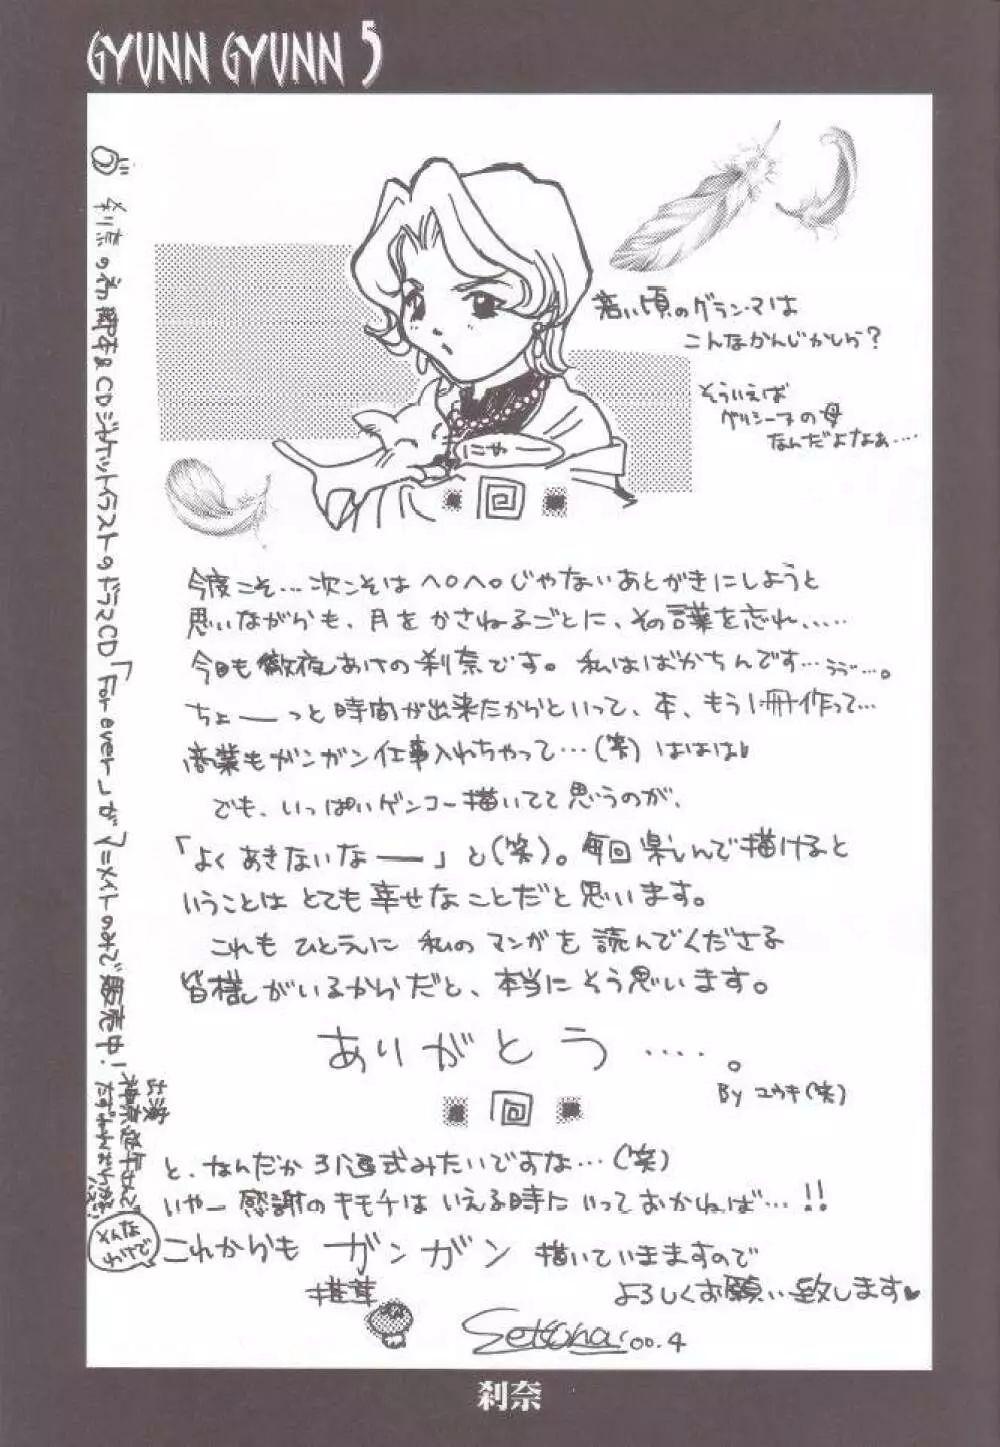 GYUNN GYUNN 5
若い頃のグラン・マは
こんなかんじかしら?
そういえば
グリシーヌの母
なんだよなぁ‥‥
にゃー
今度こそ…次こそはヘロヘロじゃないあとがきにしようと
思いながらも、月をかさねるごとに、その言葉を忘れ、、、、、、
今日も徹夜あけの刹奈です。私はばかちんです…ぅぅ…。
ちょーっと時間が出来たからといって、本、もう1冊作って…
商業もガンガン仕事入れちゃって…(笑)ははは
でも、いっぱいゲンコー描いてて思うのが、
「よくあきないなー」と(笑)。毎回楽しんで描けると
いうことはとても幸せなことだと思います。
これもひとえに私のマンガを読んでくださる
皆様がいるからだと、本当にそう思います。
ありがとう‥‥。
By ユウキ(笑)
と、なんだか引退式みたいですな…(笑)
いやー感謝のキモチはいえる時にいっておかねば…!!
これからもガンガン描いていきますので
よろしくお願い致します♥
椎茸
Setsuna '00.4
刹奈の初脚本&CDジャケットイラストのドラマCD「For ever」がアニメイトのみで販売中!
出演
刹奈